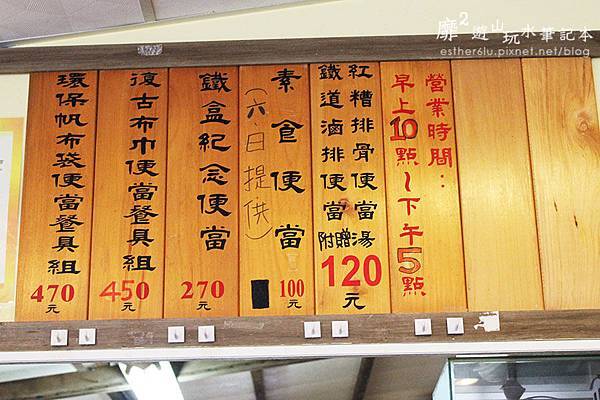 靡²遊山玩水筆記本
esther61u.pixnet.net/blog
營業時間：
早上10點～下午5點
紅糟排骨便當
鐵道滷排便當
附贈湯
120元
素食便當
（六日提供）
100元
鐵盒紀念便當
270元
復古布巾便當餐具組
450元
環保帆布袋便當餐具組
470元